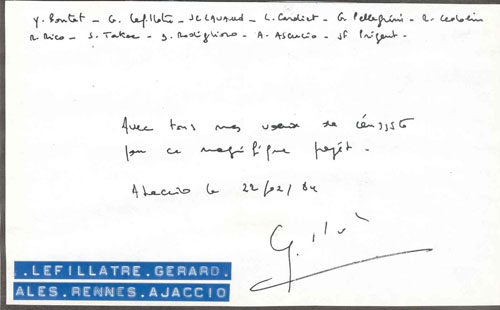 Y. Bontet - G. Lefillatre - JC LAVAUD - L. Cardiet - G. Pellegrini - R.
R. Rico - S. Takac - J. - A. Ascencio - JF Prigent -
Avec tous mes voeux de réussite
pour ce magnifique projet.
Ajaccio le 22/02/84
.LEFILLATRE.GERARD.
ALES.RENNES.AJACCIO